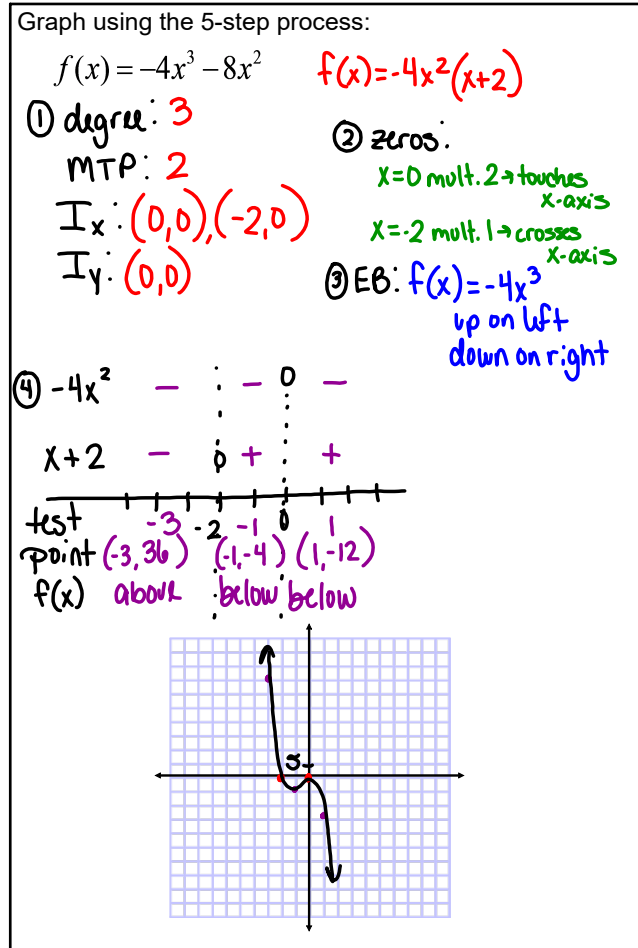 Graph using the 5-step process:
f(x) = −4x³ − 8x²
f(x) = -4x²(x+2)
① degree: 3
MTP: 2
Iₓ: (0,0),(-2,0)
Iᵧ: (0,0)
② zeros:
x=0 mult. 2 → touches
x-axis
x=-2 mult. 1 → crosses
x-axis
③ EB: f(x) = -4x³
up on left
down on right
④ -4x² − − 0 −
x+2 − 0 + +
test -3 -2 -1 0 1
point (-3, 36) (-1,-4) (1,-12)
f(x) above below below
5